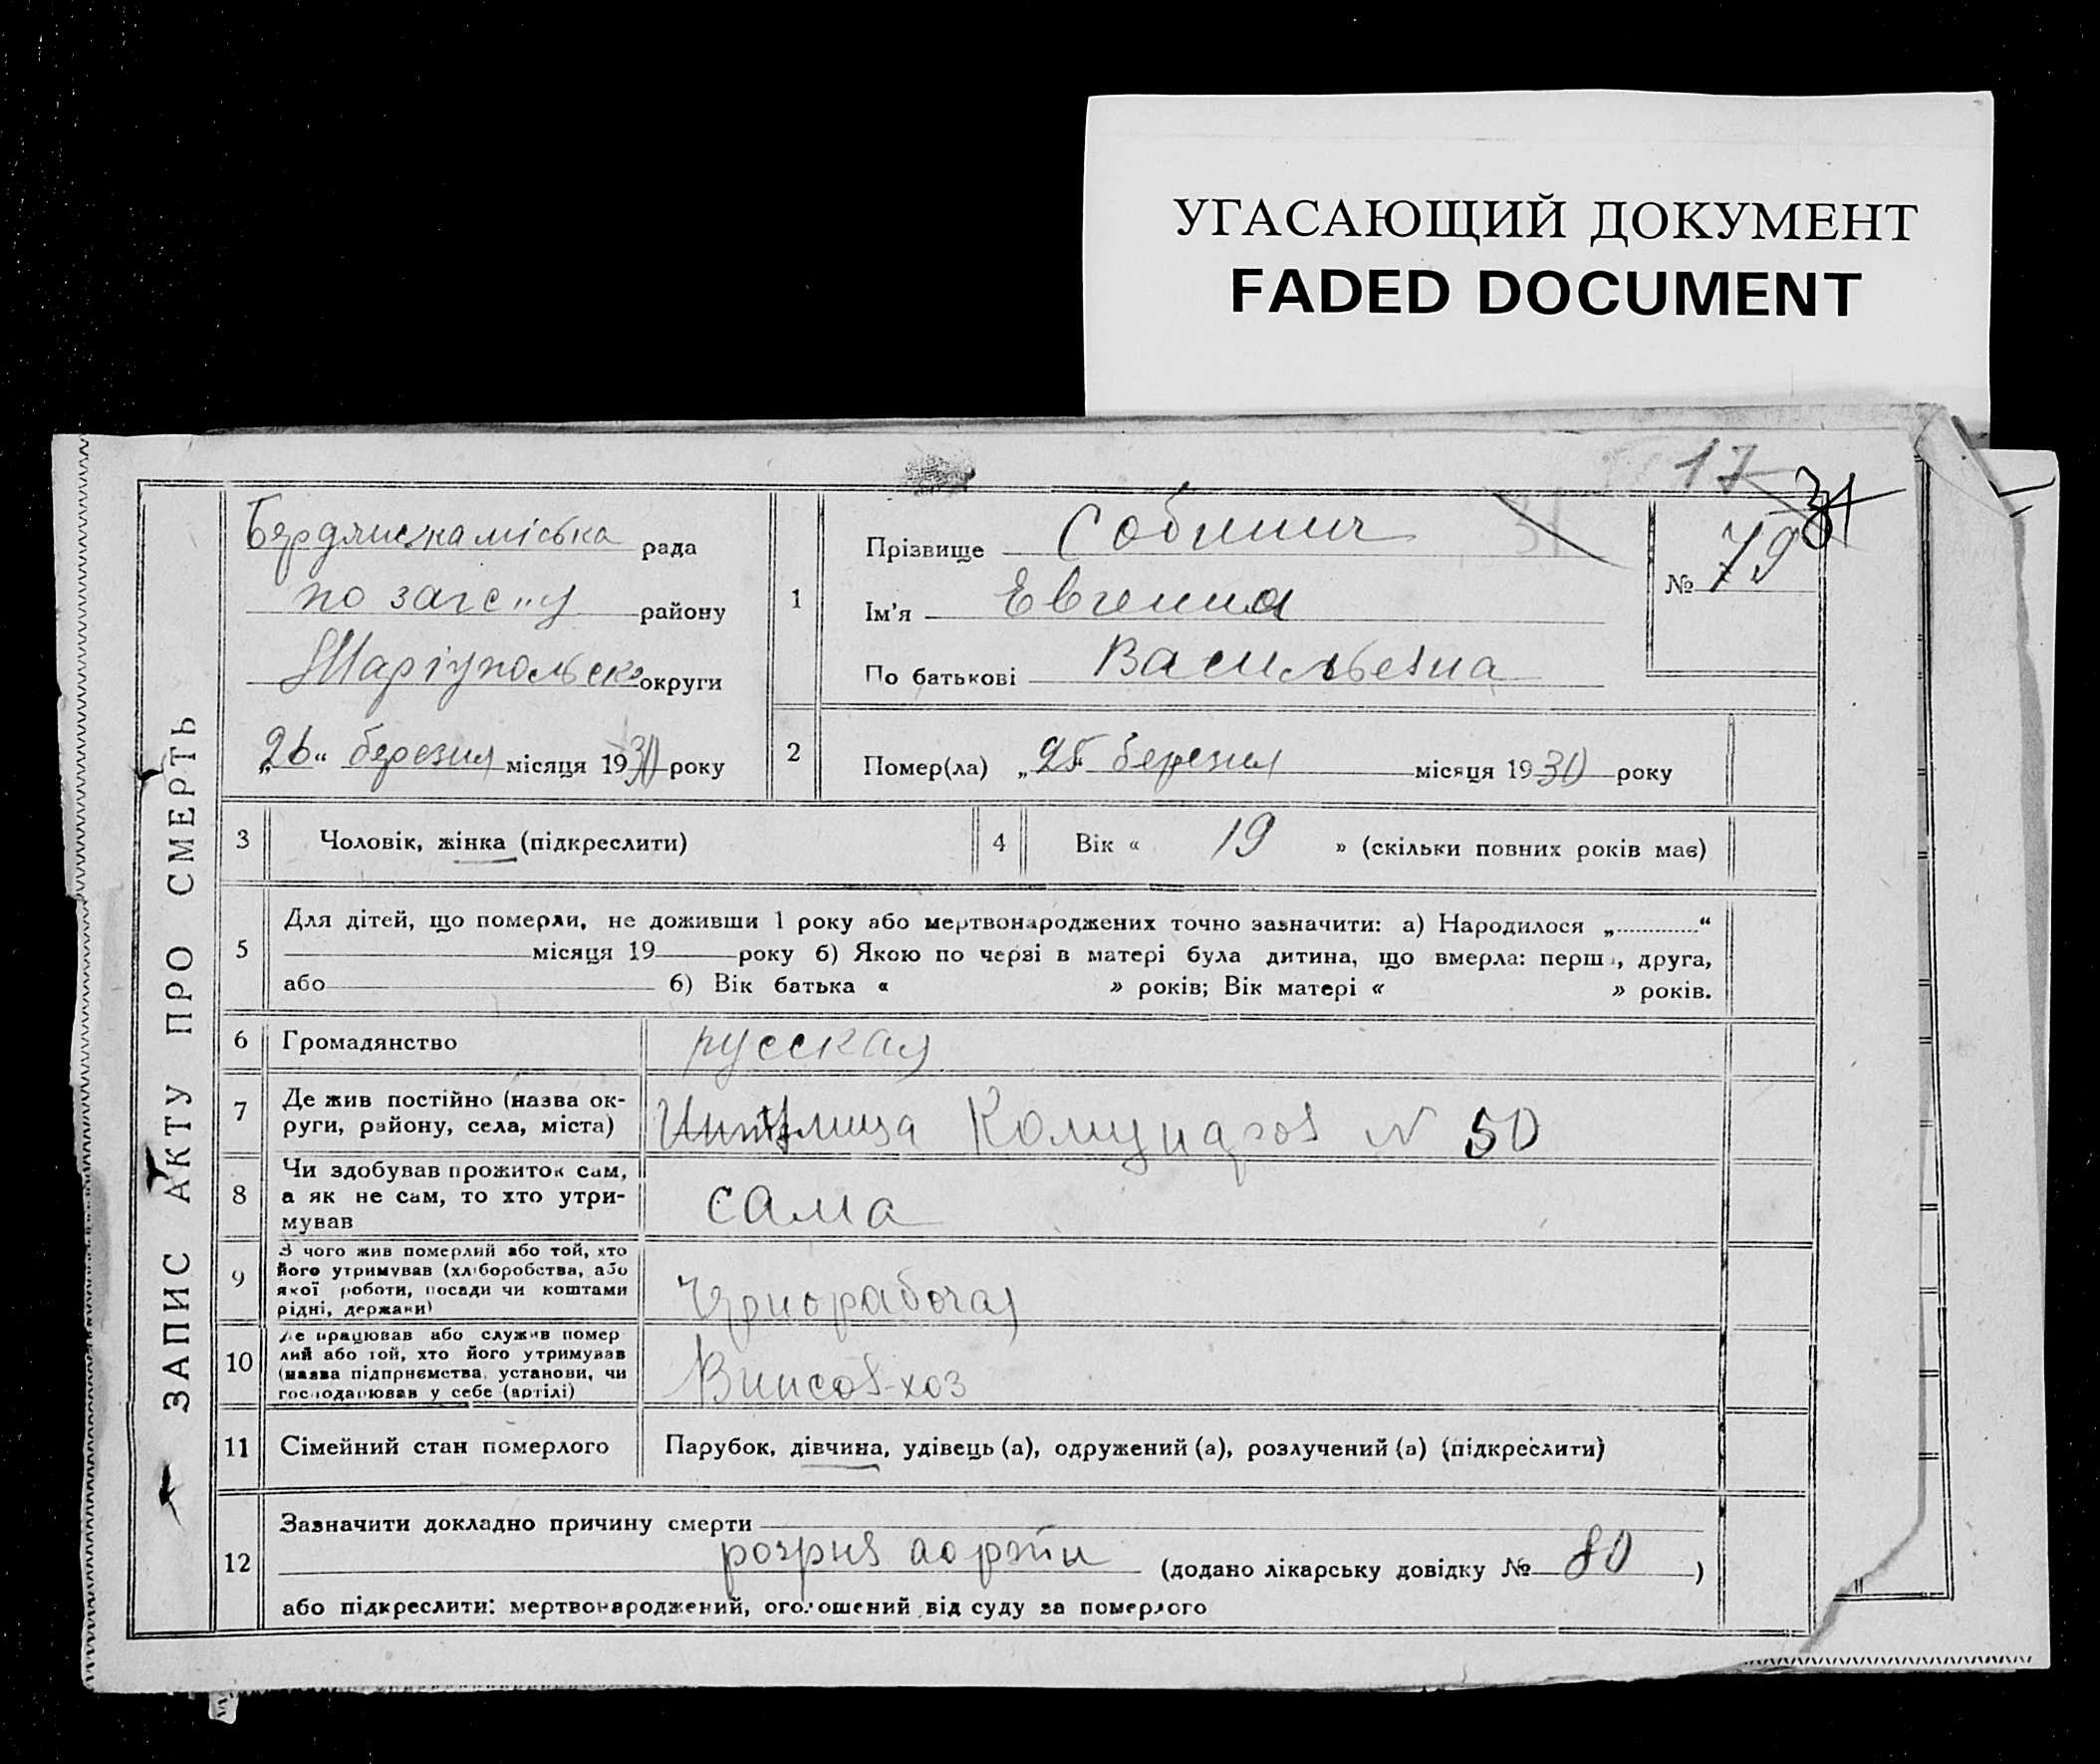 УГАСАЮЩИЙ ДОКУМЕНТ
FADED DOCUMENT
17
31
ЗАПИС АКТУ ПРО СМЕРТЬ
Бердянська міська рада
по загс"у району
Маріупольськ округи
„26“ березня місяця 1930 року
1
Прізвище
Ім'я Евгения
По батькові Васильевна
№ 79
2
Помер(ла) „25 березня місяця 1930 року
3 Чоловік, жінка (підкреслити)
4 Вік « 19 » (скільки повних років має)
5
Для дітей, що померли, не доживши 1 року або мертвонароджених точно зазначити: а) Народилося „.............“
місяця 19 року б) Якою по черзі в матері була дитина, що вмерла: перша, друга,
або б) Вік батька « » років; Вік матері « » років.
6 Громадянство русская
7 Де жив постійно (назва ок-
руги, району, села, міста)
улица Комунаров N 50
8
Чи здобував прожиток сам,
а як не сам, то хто утри-
мував
сама
9
З чого жив померлий або той, хто
його утримував (хліборобства, або
якої роботи, посади чи коштами
рідні, держави)
Чернорабочая
10
Де працював або служив помер
лий або той, хто його утримував
(назва підприємства, установи, чи
господарював у себе (артілі)
Винсов-хоз
11 Сімейний стан померлого
Парубок, дівчина, удівець (а), одружений (а), розлучений (а) (підкреслити)
12
Зазначити докладно причину смерти
розрив аорти (додано лікарську довідку № 80 )
або підкреслити: мертвонароджений, оголошений від суду за померлого